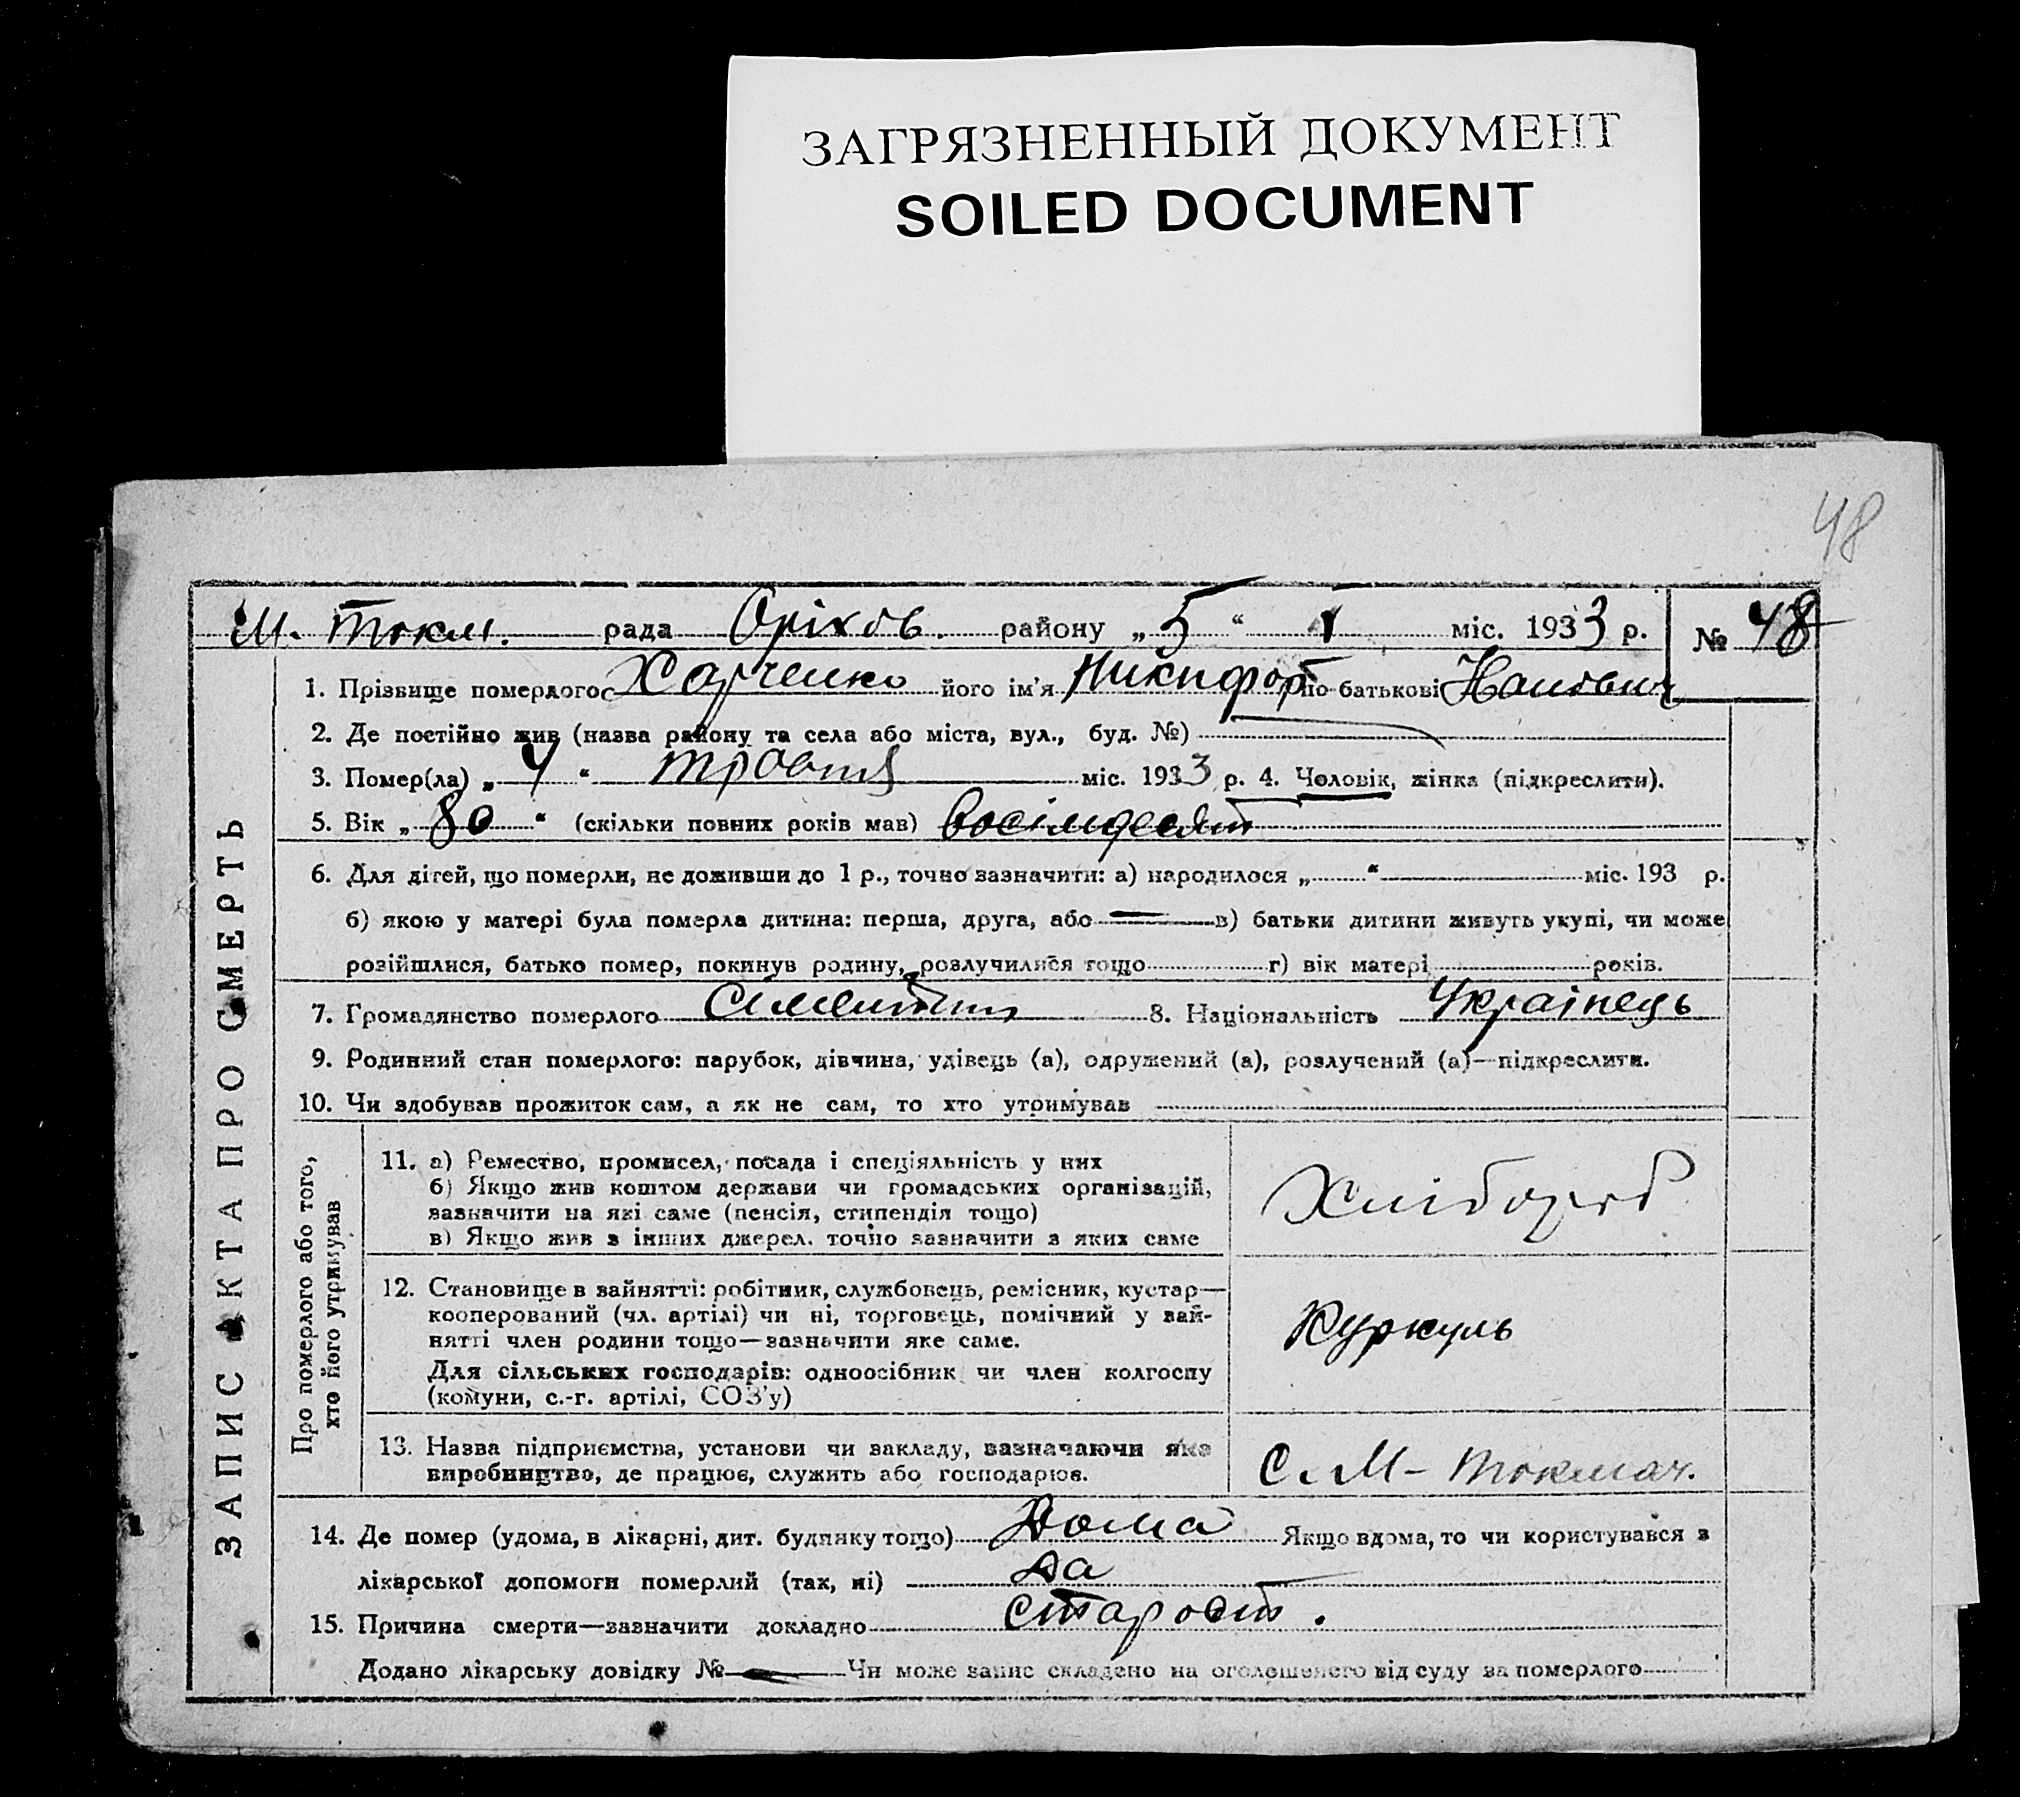 ЗАГРЯЗНЕННЫЙ ДОКУМЕНТ
SOILED DOCUMENT
48
М. Токм. рада Оріхов. району „ 5 “ V міс. 1933 р. № 48
ЗАПИС АКТА ПРО СМЕРТЬ
1. Прізвище померлого Харченко його ім’я Никифор по батькові
2. Де постійно жив (назва району та села або міста, вул., буд. №)
3. Помер(ла) „ 4 “ травня міс. 1933 р. 4. Чоловік, жінка (підкреслити).
5. Вік „ 80 “ (скільки повних років мав) восімдесят
6. Для дітей, що померли, не доживши до 1 р., точно зазначити: а) народилося „ “ міс. 193 р.
б) якою у матері була померла дитина: перша, друга, або — в) батьки дитини живуть укупі, чи може
розійшлися, батько помер, покинув родину, розлучилися тощо г) вік матері років.
7. Громадянство померлого 8. Національність Українець
9. Родинний стан померлого: парубок, дівчина, удівець (а), одружений (а), розлучений (а)—підкреслити.
10. Чи здобував прожиток сам, а як не сам, то хто утримував
Про померлого або того,
хто його утримував
11. а) Ремество, промисел, посада і спеціяльність у них
б) Якщо жив коштом держави чи громадських організацій,
зазначити на які саме (пенсія, стипендія тощо)
в) Якщо жив з інших джерел, точно зазначити з яких саме
Хлібороб
12. Становище в зайнятті: робітник, службовець, ремісник, кустар—
кооперований (чл. артілі) чи ні, торговець, помічний у зай-
нятті член родини тощо—зазначити яке саме.
Для сільських господарів: одноосібник чи член колгоспу
(комуни, с.-г. артілі, СОЗ’у)
Куркуль
13. Назва підприємства, установи чи закладу, зазначаючи яке
виробництво, де працює, служить або господарює.
С. М- Токмач.
14. Де помер (удома, в лікарні, дит. будинку тощо) Дома Якщо вдома, то чи користувався з
лікарської допомоги померлий (так, ні) да
15. Причина смерти—зазначити докладно старост.
Додано лікарську довідку № — Чи може запис складено на оголошеного від суду за померлого